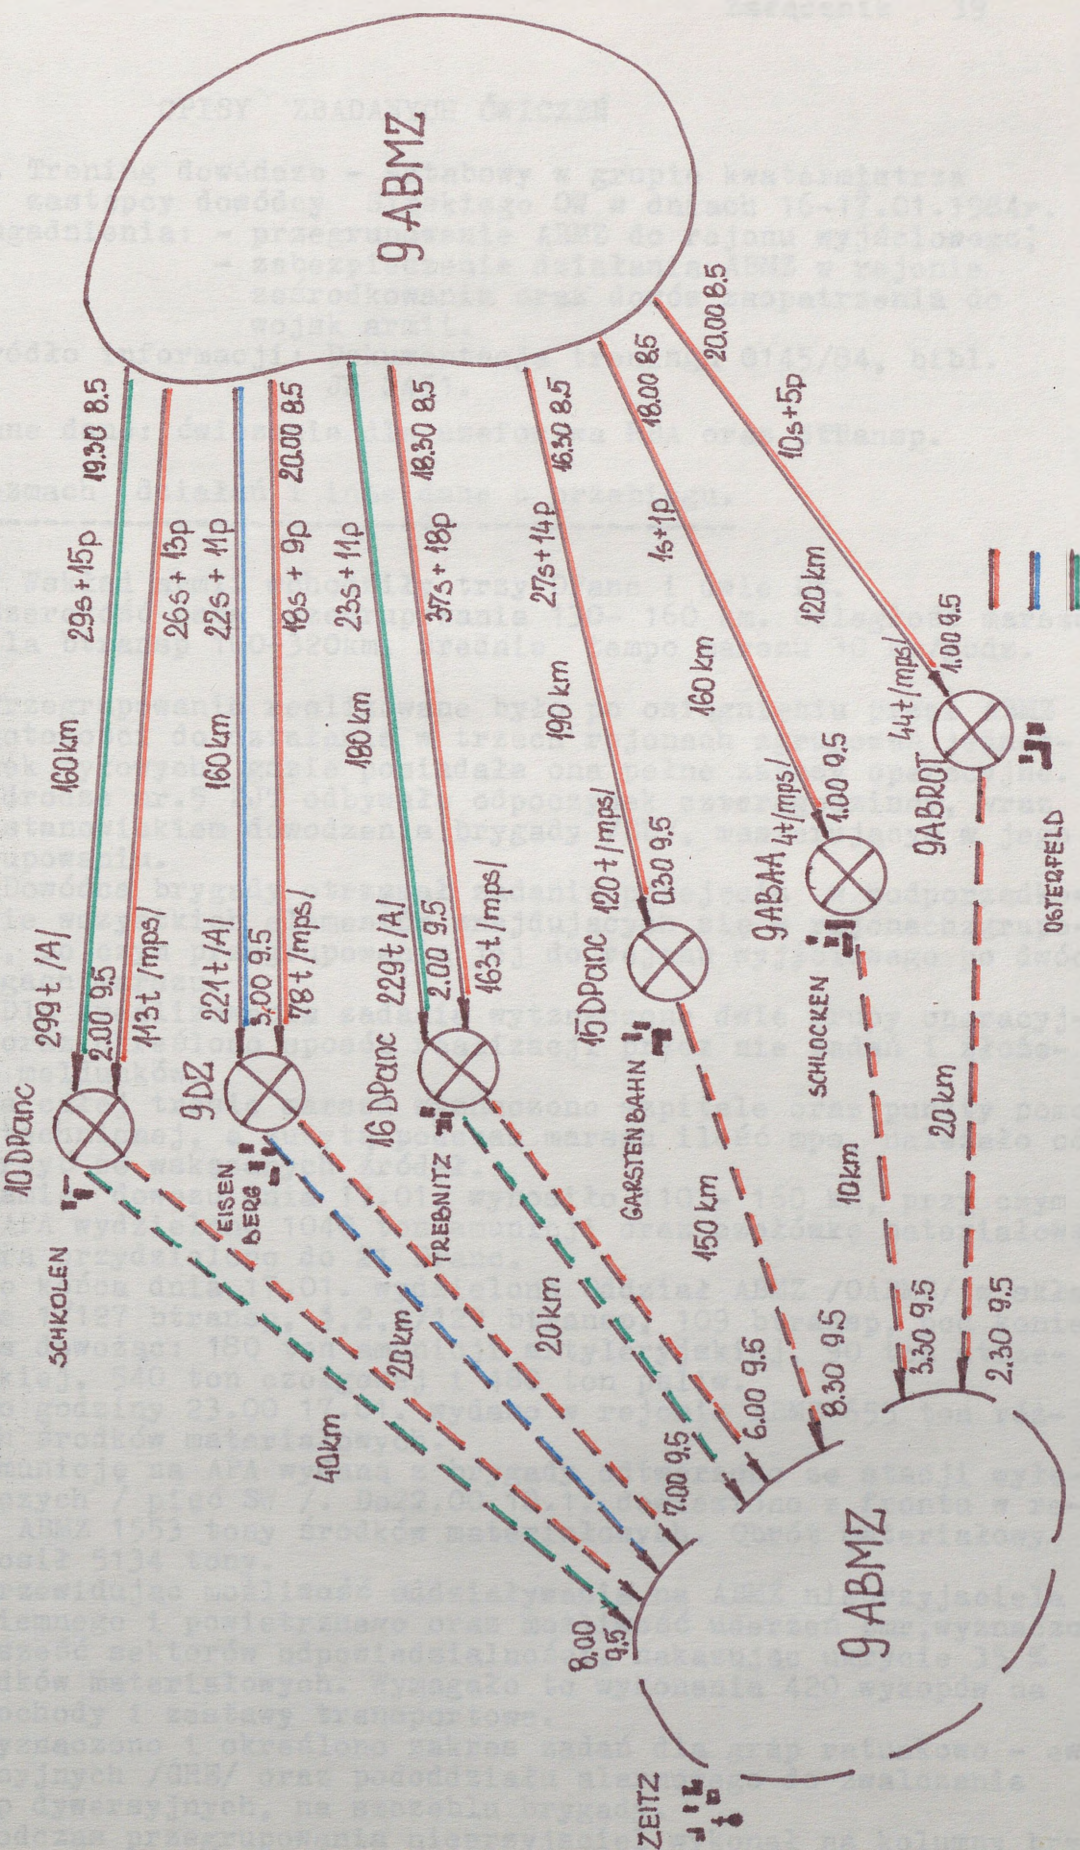 9 ABMZ
19.30 8.5
29s+15p
160km
299t/A/
2.00 9.5
113t/mps/
26s+13p
10DPanc
SCHKOLEN
22s+11p
160km
221t/A/
20.00 8.5
18s+9p
78t/mps/
9DZ
EISEN
BERG
23s+11p
180km
229t/A/
2.00 9.5
18.30 8.5
37s+18p
163t/mps/
16DPanc
TREBNITZ
16.30 8.5
27s+14p
190km
120t/mps/
0.30 9.5
15DPanc
GARSTENBAHN
18.00 8.5
1s+1p
160km
4t/mps/
1.00 9.5
9ABAA
SCHLOCKEN
20.00 8.5
10s+5p
120km
44t/mps/
1.00 9.5
9ABROT
OSTERFELD
40km
20km
20km
150km
10km
20km
8.00
9.5
7.00 9.5
6.00 9.5
8.30 9.5
3.30 9.5
2.30 9.5
9ABMZ
ZEITZ